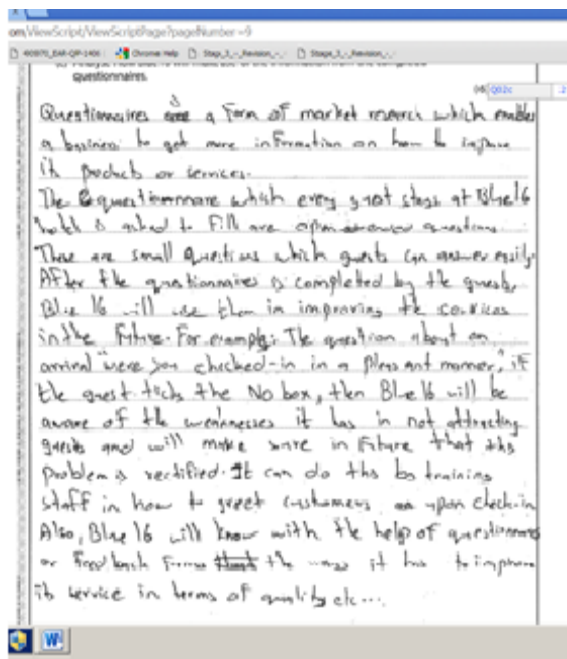 om/ViewScript/ViewScriptPage?pageNumber=9
Chrome Help
questionnaires.
Q02c
Questionnaires is a form of market research which enables
a business to get more information on how to improve
its products or services.
The questionnare which every guest stays at Blue16
hotel is asked to fill are open questions.
These are small Questions which guests can answer easily.
After the questionnaires is completed by the guests,
Blue 16 will use them in improving the services
in the Future. For example: The question about on
arrival "were you checked-in in a pleasant manner," if
the guest ticks the No box, then Blue 16 will be
aware of the weaknesses it has in not attracting
guests and will make sure in Future that this
problem is rectified. It can do this by training
staff in how to greet customers upon check-in
Also, Blue 16 will know with the help of questionnaires
or feedback forms the ways it has to improve
its service in terms of quality etc...